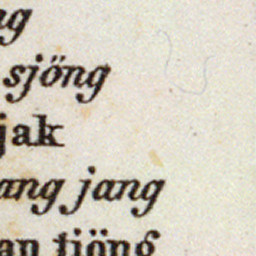 sjöng
jak
ang jang
an tjöng